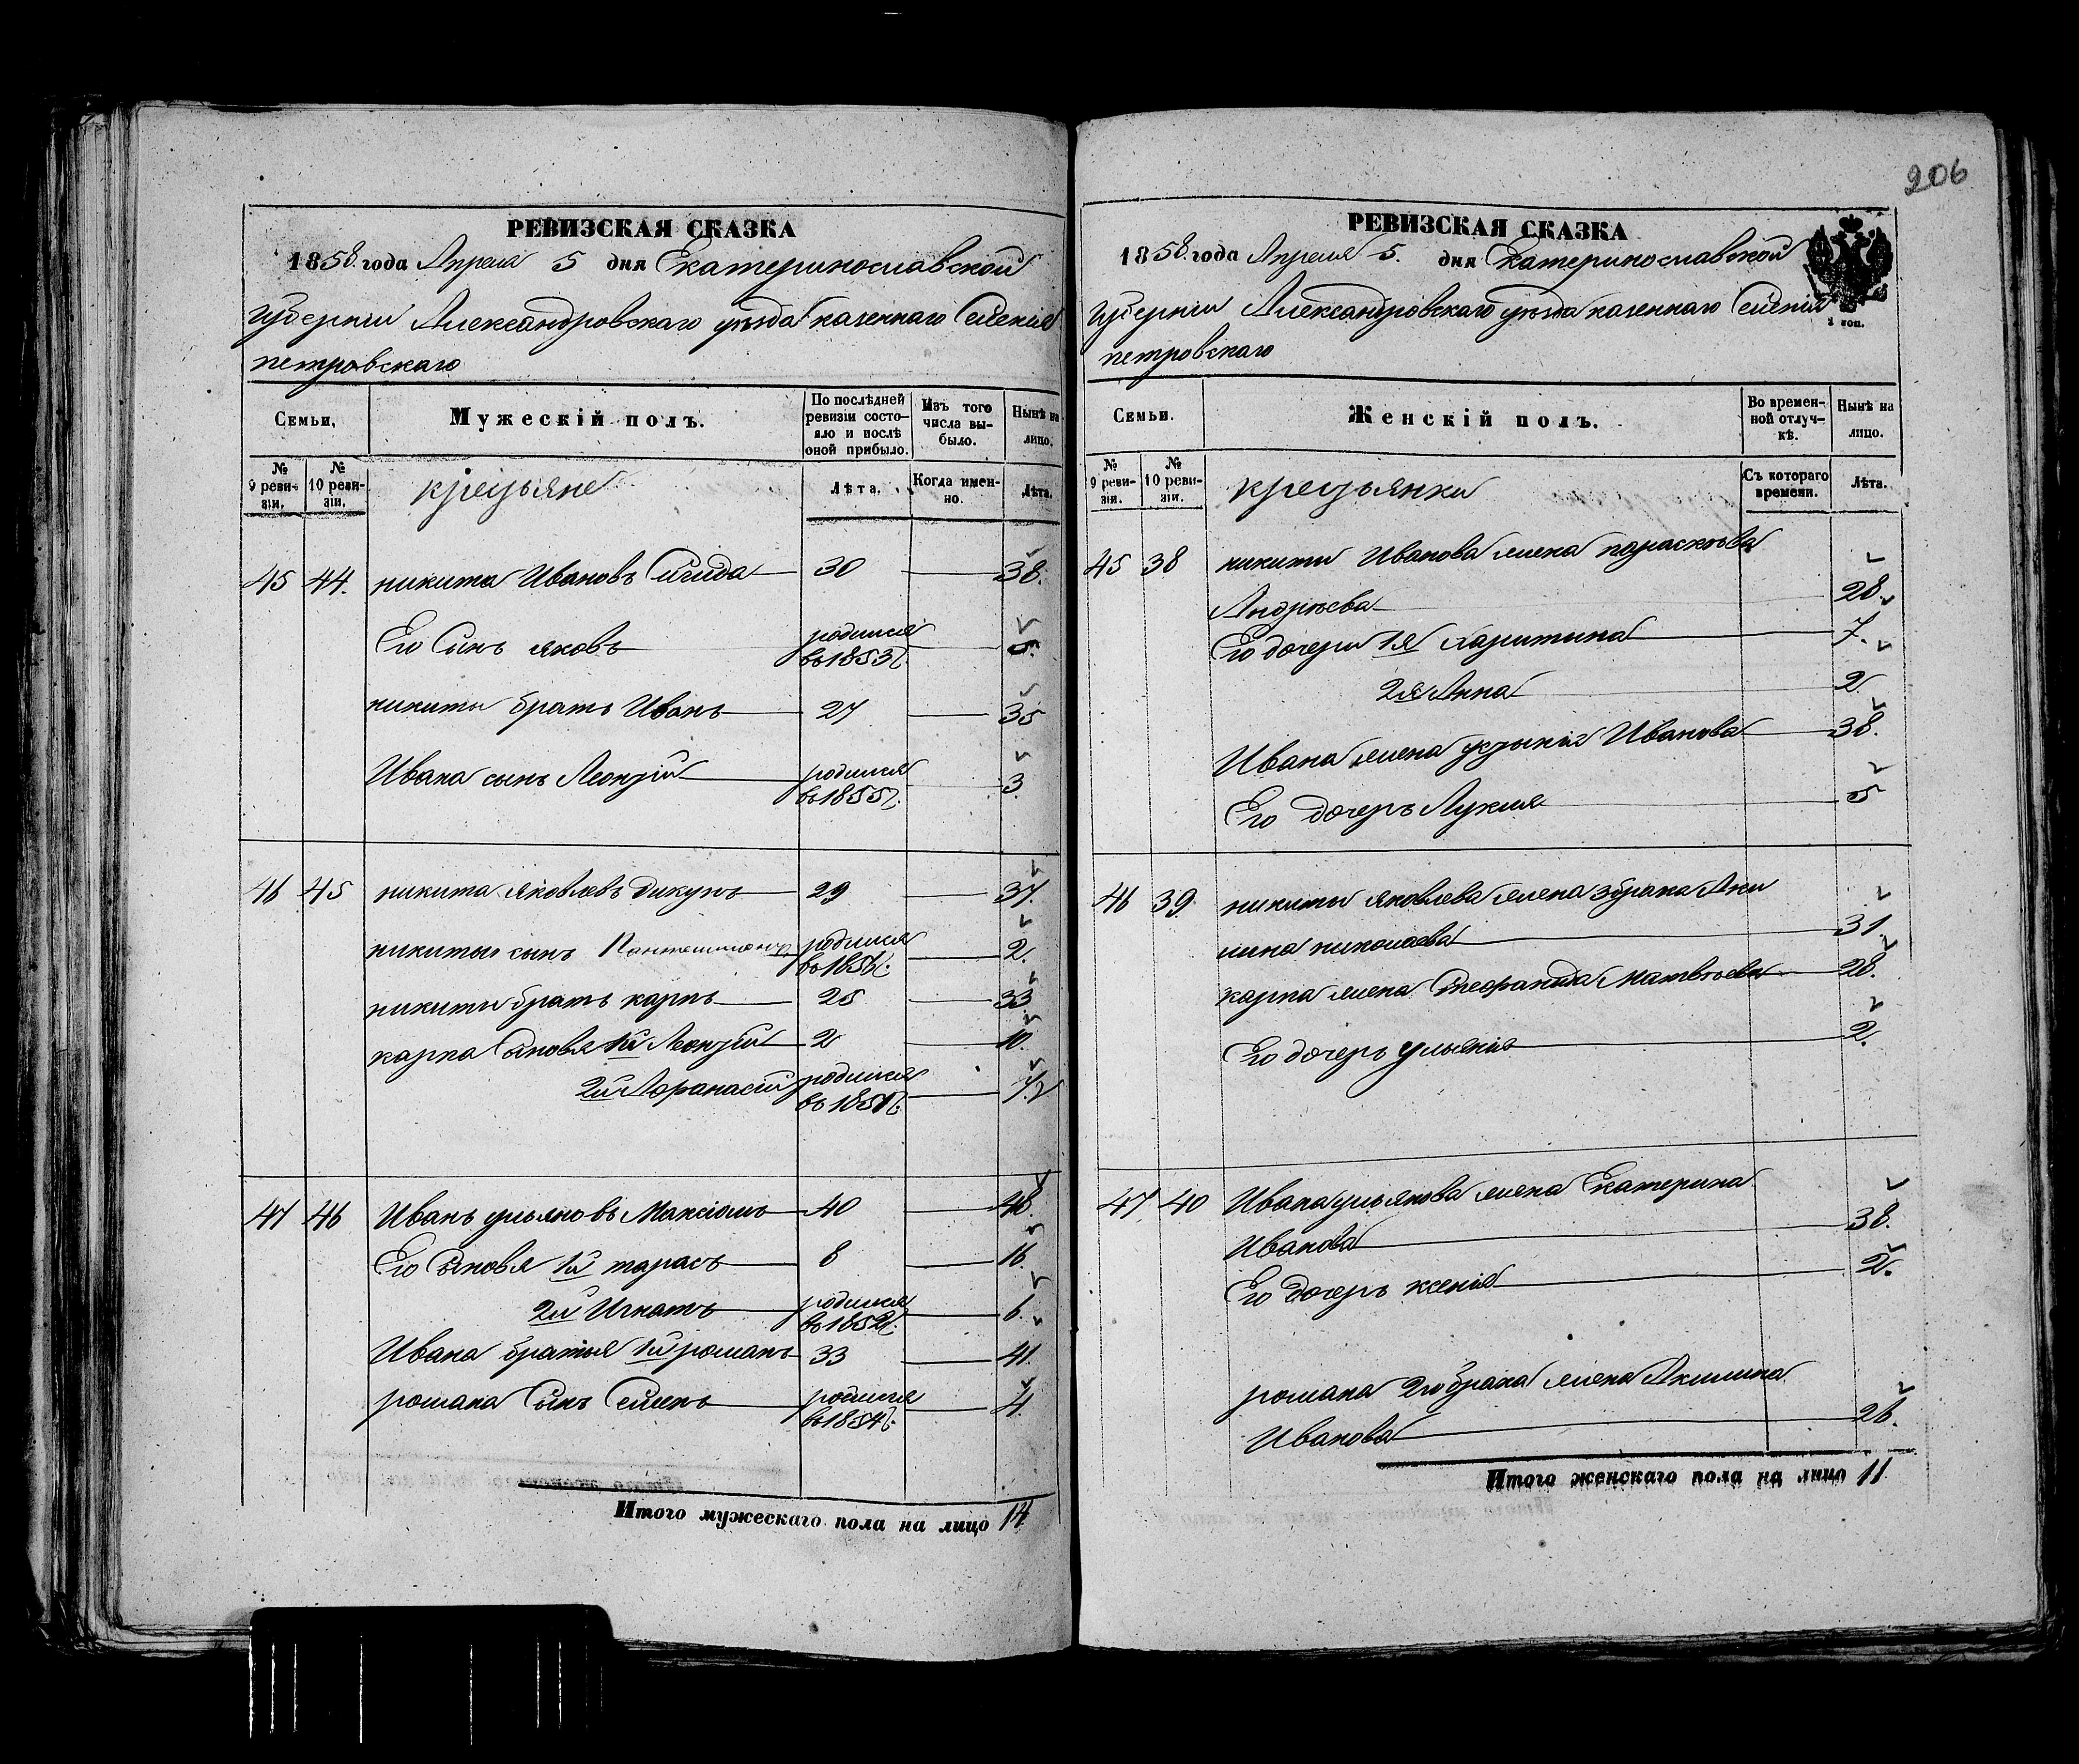 206
РЕВИЗСКАЯ СКАЗКА
1858 года Апреля 5 дня Екатеринославской
губерніи Александровскаго уѣзда казеннаго Селенія
петровскаго
Семьи,
Мужескій полъ.
По послѣдней ревизіи состо-
яло и послѣ
оной прибыло.
Изъ того
числа вы-
было.
Нынѣ на
лицо.
№
9 реви-
зіи.
№
10 реви-
зіи.
крестьяне
Лѣта.
Когда имен-
но.
Лѣта.
45 44. никита Ивановъ 30 38.
Его Сынъ яковъ родился въ 1853 г. 5.
никиты братъ Иванъ 27 35
Ивана сынъ Леонтій родился въ 1855 г. 3.
46 45 никита яковлевъ дикунъ 29 37.
никиты сынъ Пантелимонъ родился въ 1856 г. 2.
никиты братъ карпъ 25 33
карпа Сыновья 1й Леонтій 2 10.
2й Афанасій родился въ 1851 г. 7.
47 46 Иванъ ульяновъ Максіомъ 40 48.
Его Сыновья 1й тарасъ 8 16.
2й Игнатъ родился въ 1852 г. 6.
Ивана братья 1й романъ 33 41.
романа Сынъ Семенъ родился въ 1854 г. 4.
Итого мужескаго пола на лицо 14
РЕВИЗСКАЯ СКАЗКА
1858 года Апреля 5. дня Екатеринославской
губерніи Александровскаго уѣзда казеннаго Селенія
петровскаго
Семьи.
Женскій полъ.
Во времен-
ной отлуч-
кѣ.
Нынѣ на
лицо.
№
9 реви-
зіи.
№
10 реви-
зіи.
крестьянки
Съ котораго
времени.
Лѣта.
45 38 никиты Иванова жена парасковѣа
Андрѣева 28.
Его дочери 1я харитина 7.
2я Анна 2
Ивана жена устинія Иванова 38.
Его дочерь Лукия 5
46 39. никиты яковлева жена 3 брака Аку
лина николаева 31.
карпа жена Феофанида Матвѣева 28.
Его дочерь ульянія 2.
47. 40 Ивана ульянова жена Екатерина
Иванова 38.
Его дочерь ксенія 2.
романа 2го брака жена Акилина
Иванова 26.
Итого женскаго пола на лицо 11